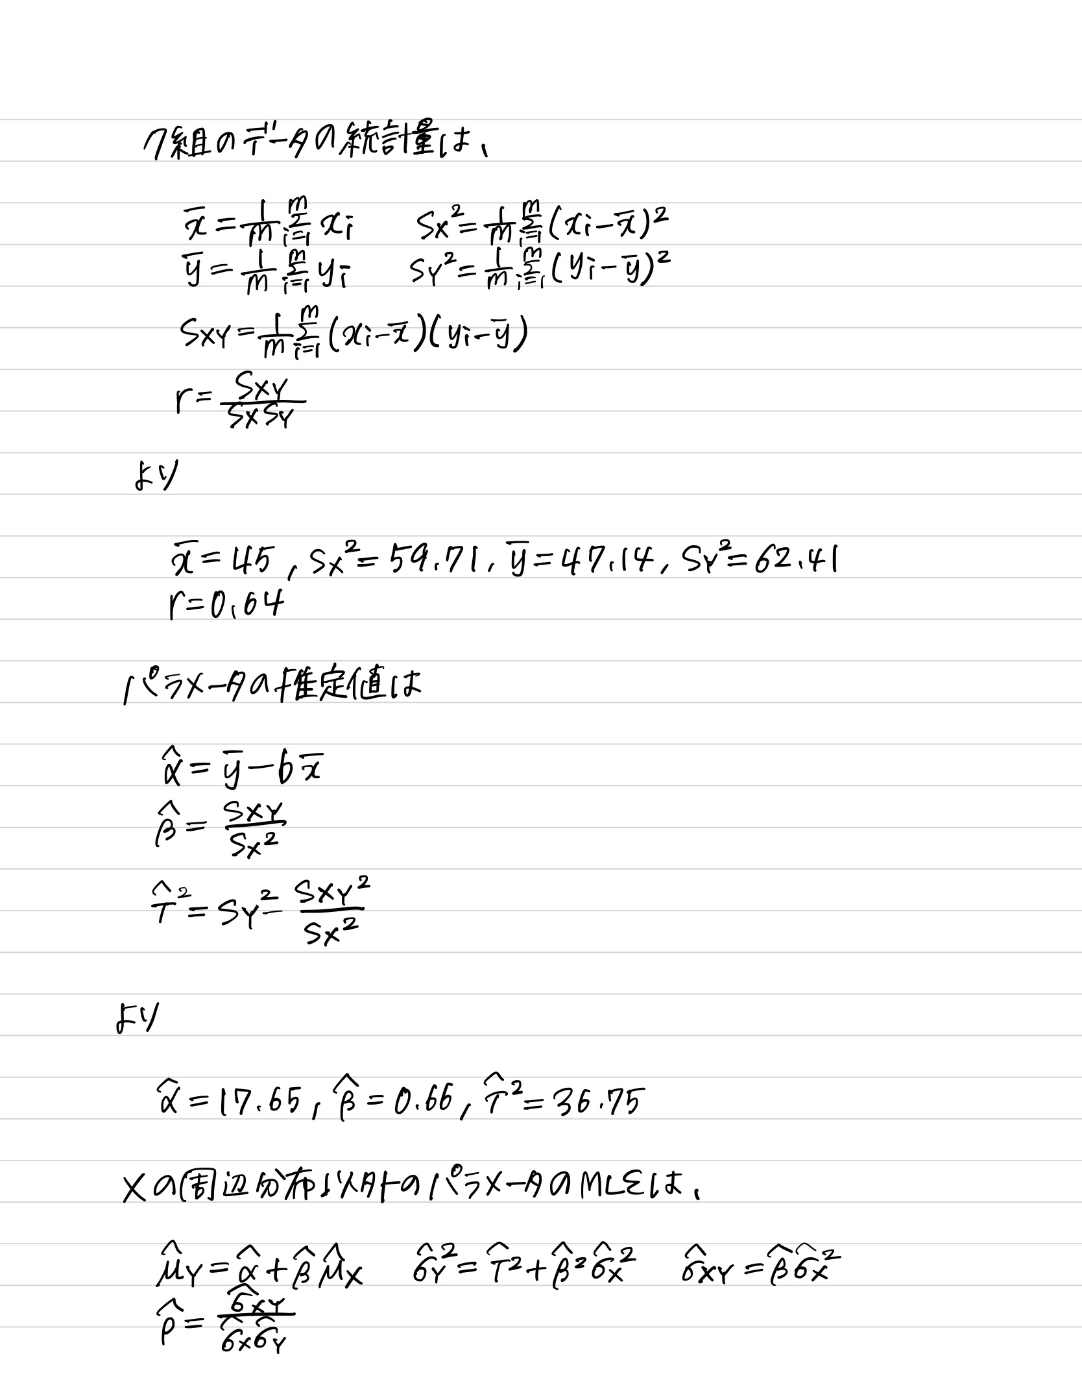 7組のデータの統計量は、
x̄ = 1/m Σ_{i=1}^{m} xi  Sx² = 1/m Σ_{i=1}^{m} (xi − x̄)²
ȳ = 1/m Σ_{i=1}^{m} yi  SY² = 1/m Σ_{i=1}^{m} (yi − ȳ)²
SXY = 1/m Σ_{i=1}^{m} (xi − x̄)(yi − ȳ)
r = SXY / SXSY
より
x̄ = 45, Sx² = 59.71, ȳ = 47.14, SY² = 62.41
r = 0.64
パラメータの推定値は
α̂ = ȳ − bx̄
β̂ = SXY / Sx²
τ̂² = SY² − SXY² / SX²
より
α̂ = 17.65, β̂ = 0.66, τ̂² = 36.75
Xの周辺分布以外のパラメータのMLEは、
μ̂Y = α̂ + β̂μ̂X  σ̂Y² = τ̂² + β̂²σ̂X²  σ̂XY = β̂σ̂X²
ρ̂ = σ̂XY / σ̂Xσ̂Y